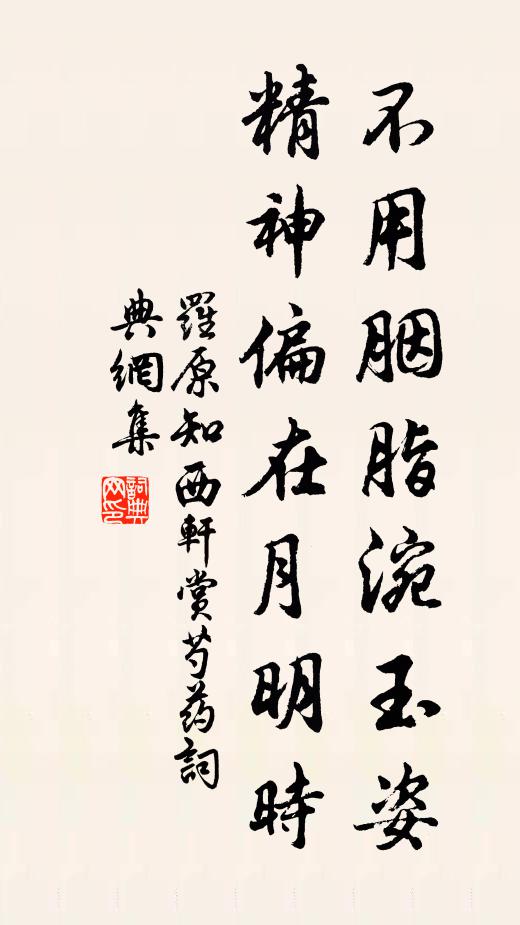 不用胭脂涴玉姿
精神偏在月明時
羅原知西軒賞芍药詞
典網集
詞典网印